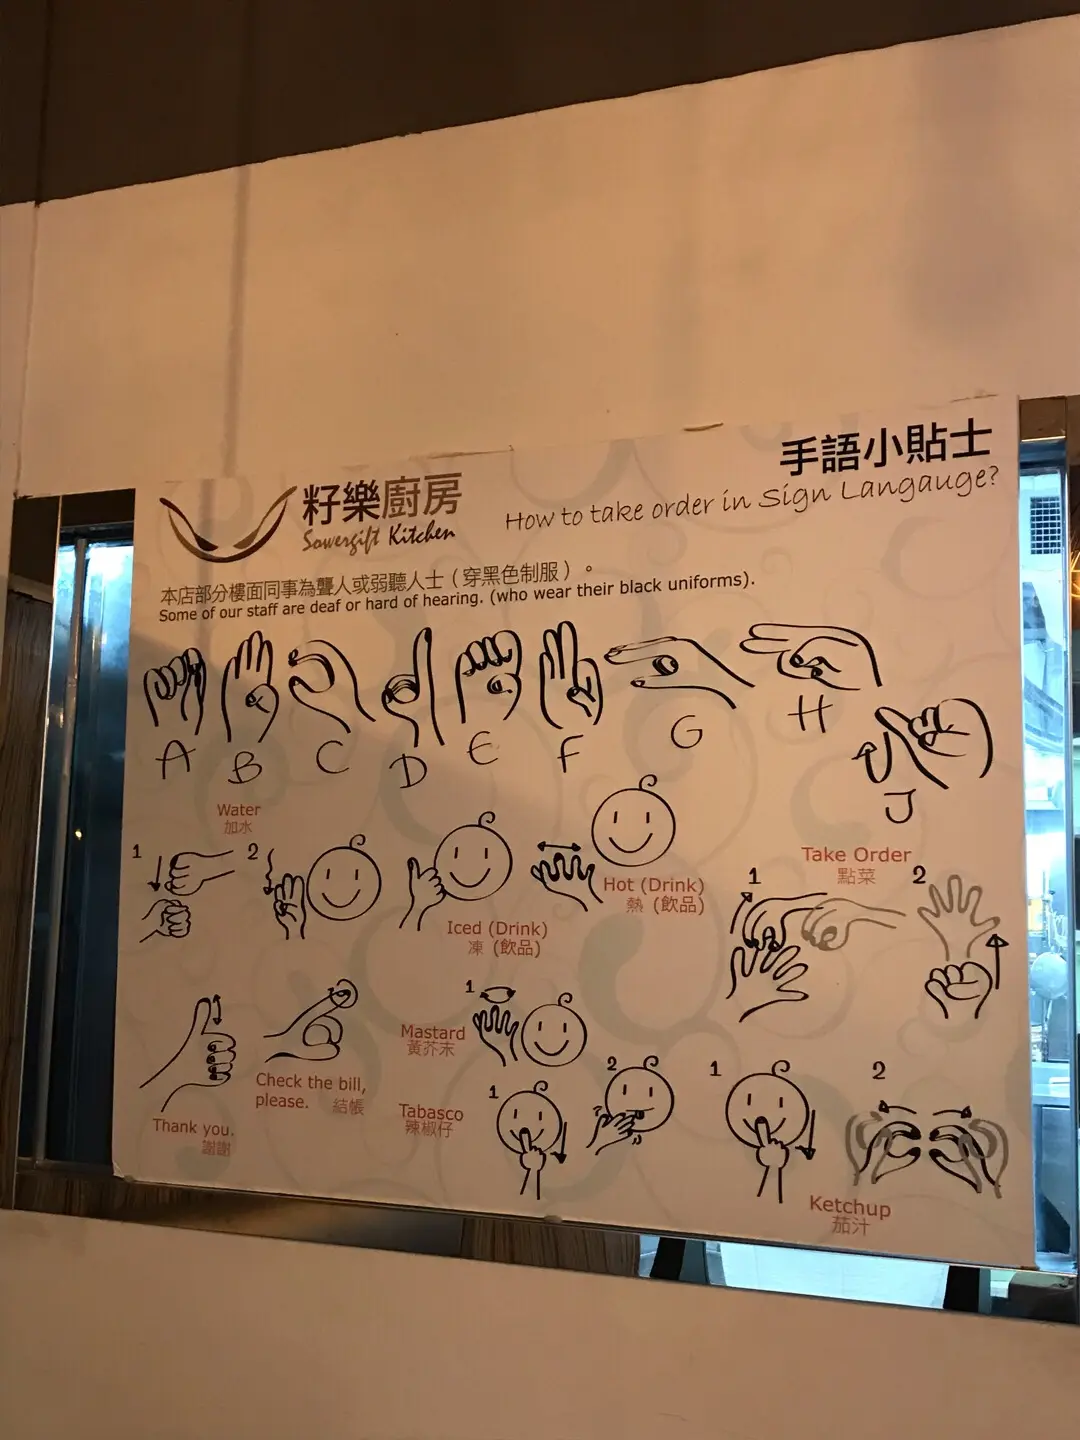 籽樂廚房
Sowergift Kitchen
手語小貼士
How to take order in Sign Langauge?
本店部分樓面同事為聾人或弱聽人士（穿黑色制服）。
Some of our staff are deaf or hard of hearing. (who wear their black uniforms).
A B C D E F G H J
Water
加水
1 2
Iced (Drink)
凍 (飲品)
Hot (Drink)
熱 (飲品)
Take Order
點菜
1 2
Thank you.
謝謝
Check the bill,
please. 結帳
Mastard
黃芥末
1
Tabasco
辣椒仔
1 2
1 2
Ketchup
茄汁